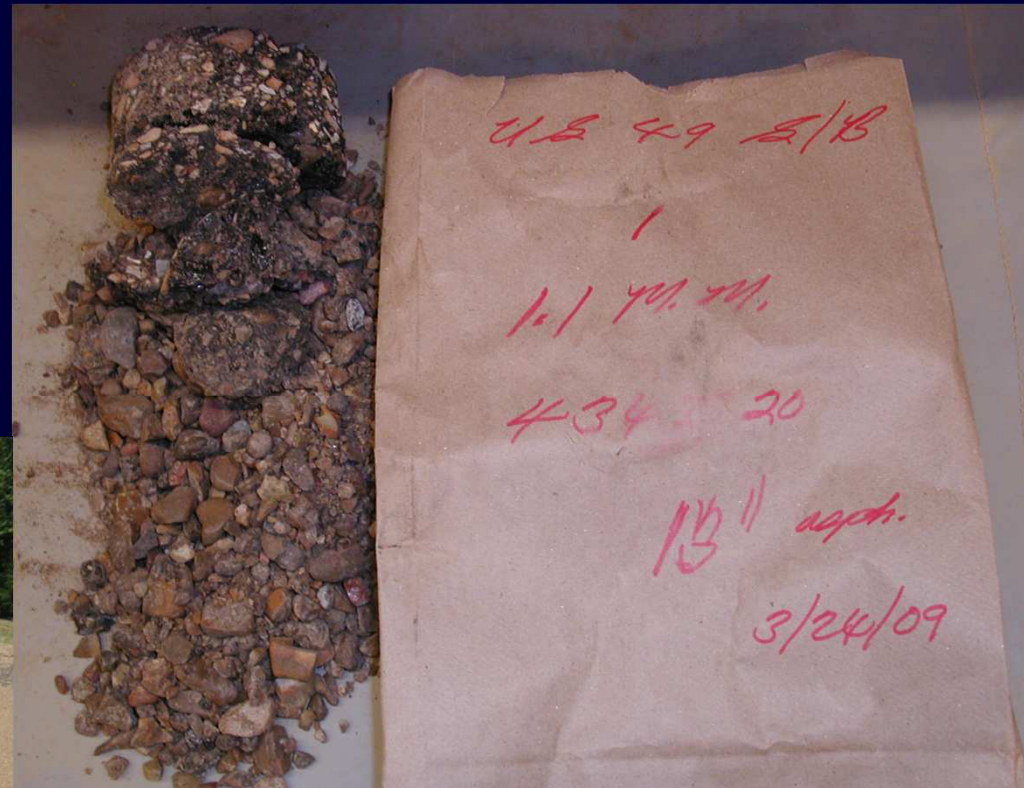 US 49 S/B
1
1.1 M.M.
434 20
" asph.
3/24/09